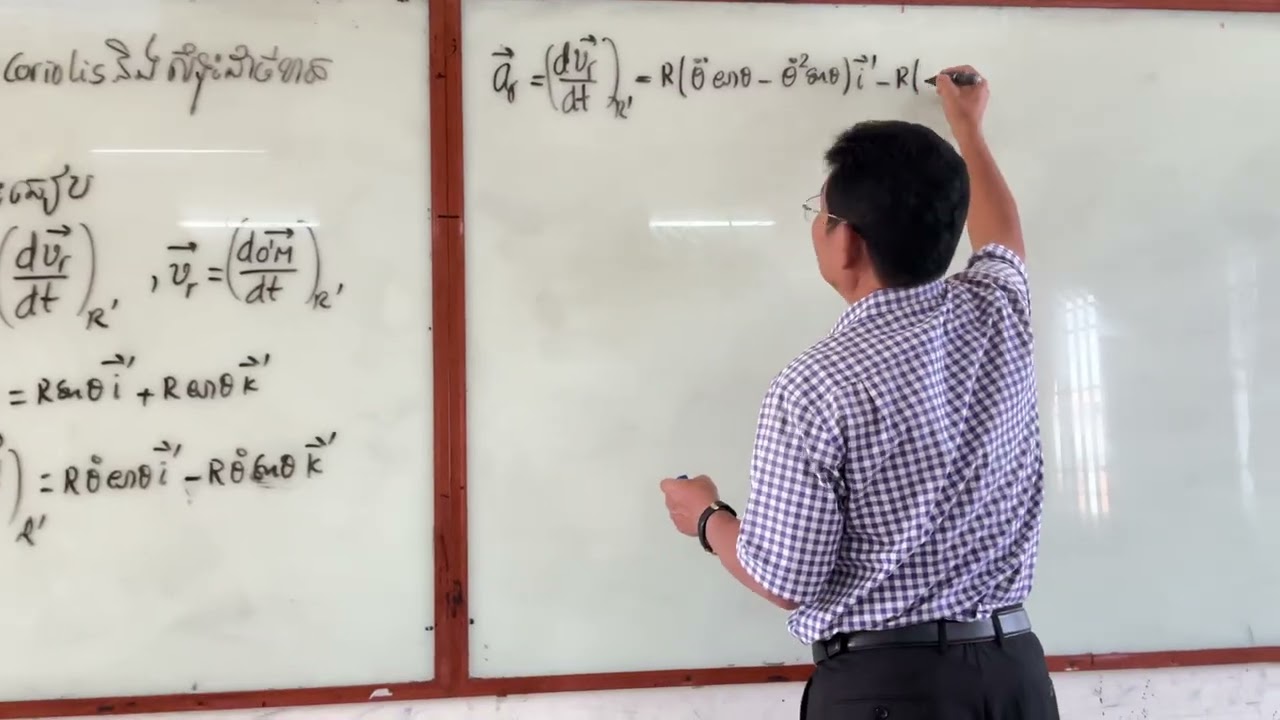 Coriolis និង
(d v⃗r / dt)R' , v⃗r = (d O'M⃗ / dt)R'
= R sinθ i⃗' + R cosθ k⃗'
)R' = Rθ̇ cosθ i⃗' − Rθ̇ sinθ k⃗'
a⃗r = (d v⃗r / dt)R' = R(θ̈ cosθ − θ̇² sinθ) i⃗' − R(